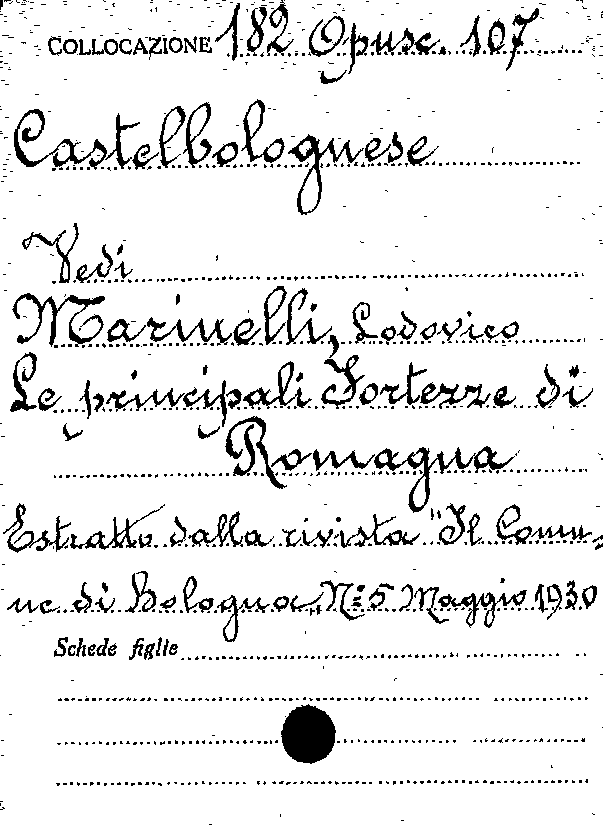 COLLOCAZIONE 182 Opusc. 107
Castelbolognese
Vedi
Marinelli, Lodovico
Le principali Fortezze di
Romagna
Estratto dalla rivista "Il Comu-
ne di Bologna„ N: 5 Maggio 1930
Schede figlie